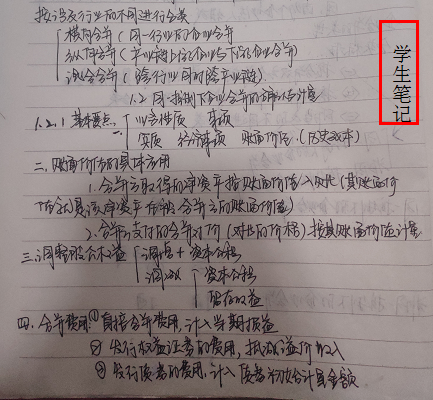 按涉及行业的不同进行分类
横向合并(同一行业的企业合并)
纵向合并(产业链上游企业与下游企业合并)
混合合并(跨行业同时跨产业链)
1.2 同一控制下企业合并的确认与计量
1.2.1 基本要点 一、业务性质 事项
二、实质 经济事项 账面价值(历史成本)
二、账面价值的具体应用
1.合并方取得的净资产按账面价值入账(其账面价
值就是该净资产在被合并方的账面价值)
2.合并方支付的合并对价(对他的价格)按其账面价值计量
三、调整股东权益
调增+资本公积
调减 资本公积
留存收益
四、合并费用:① 直接合并费用,计入当期损益
② 发行权益证券的费用,抵减溢价收入
③ 发行债券的费用,计入债券初始计量金额
学生笔记